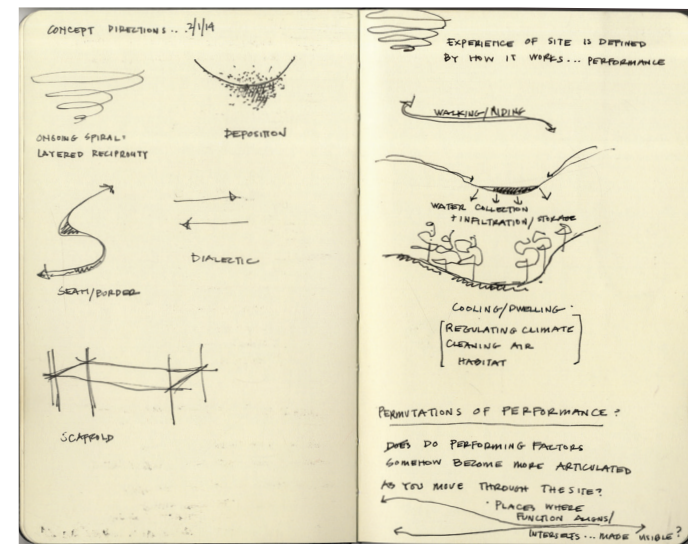 CONCEPT DIRECTIONS... 2/1/14
ONGOING SPIRAL:
LAYERED RECIPROCITY
DEPOSITION
SEAM/BORDER
DIALECTIC
SCAFFOLD
EXPERIENCE OF SITE IS DEFINED
BY HOW IT WORKS... PERFORMANCE
WALKING/RIDING
WATER COLLECTION
+ INFILTRATION/STORAGE
COOLING/DWELLING
REGULATING CLIMATE
CLEANING AIR
HABITAT
PERMUTATIONS OF PERFORMANCE?
DOES DO PERFORMING FACTORS
SOMEHOW BECOME MORE ARTICULATED
AS YOU MOVE THROUGH THE SITE?
PLACES WHERE
FUNCTION ALIGNS/
INTERSECTS... MADE VISIBLE?